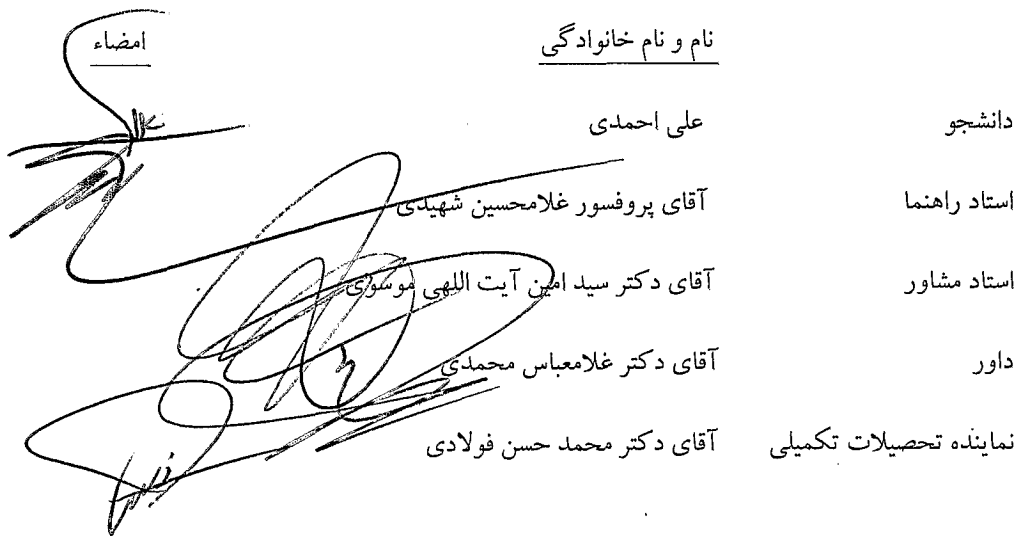 نام و نام خانوادگی امضاء
دانشجو علی احمدی
استاد راهنما آقای پروفسور غلامحسین شهیدی
استاد مشاور آقای دکتر سید امین آیت اللهی موسوی
داور آقای دکتر غلامعباس محمدی
نماینده تحصیلات تکمیلی آقای دکتر محمد حسن فولادی